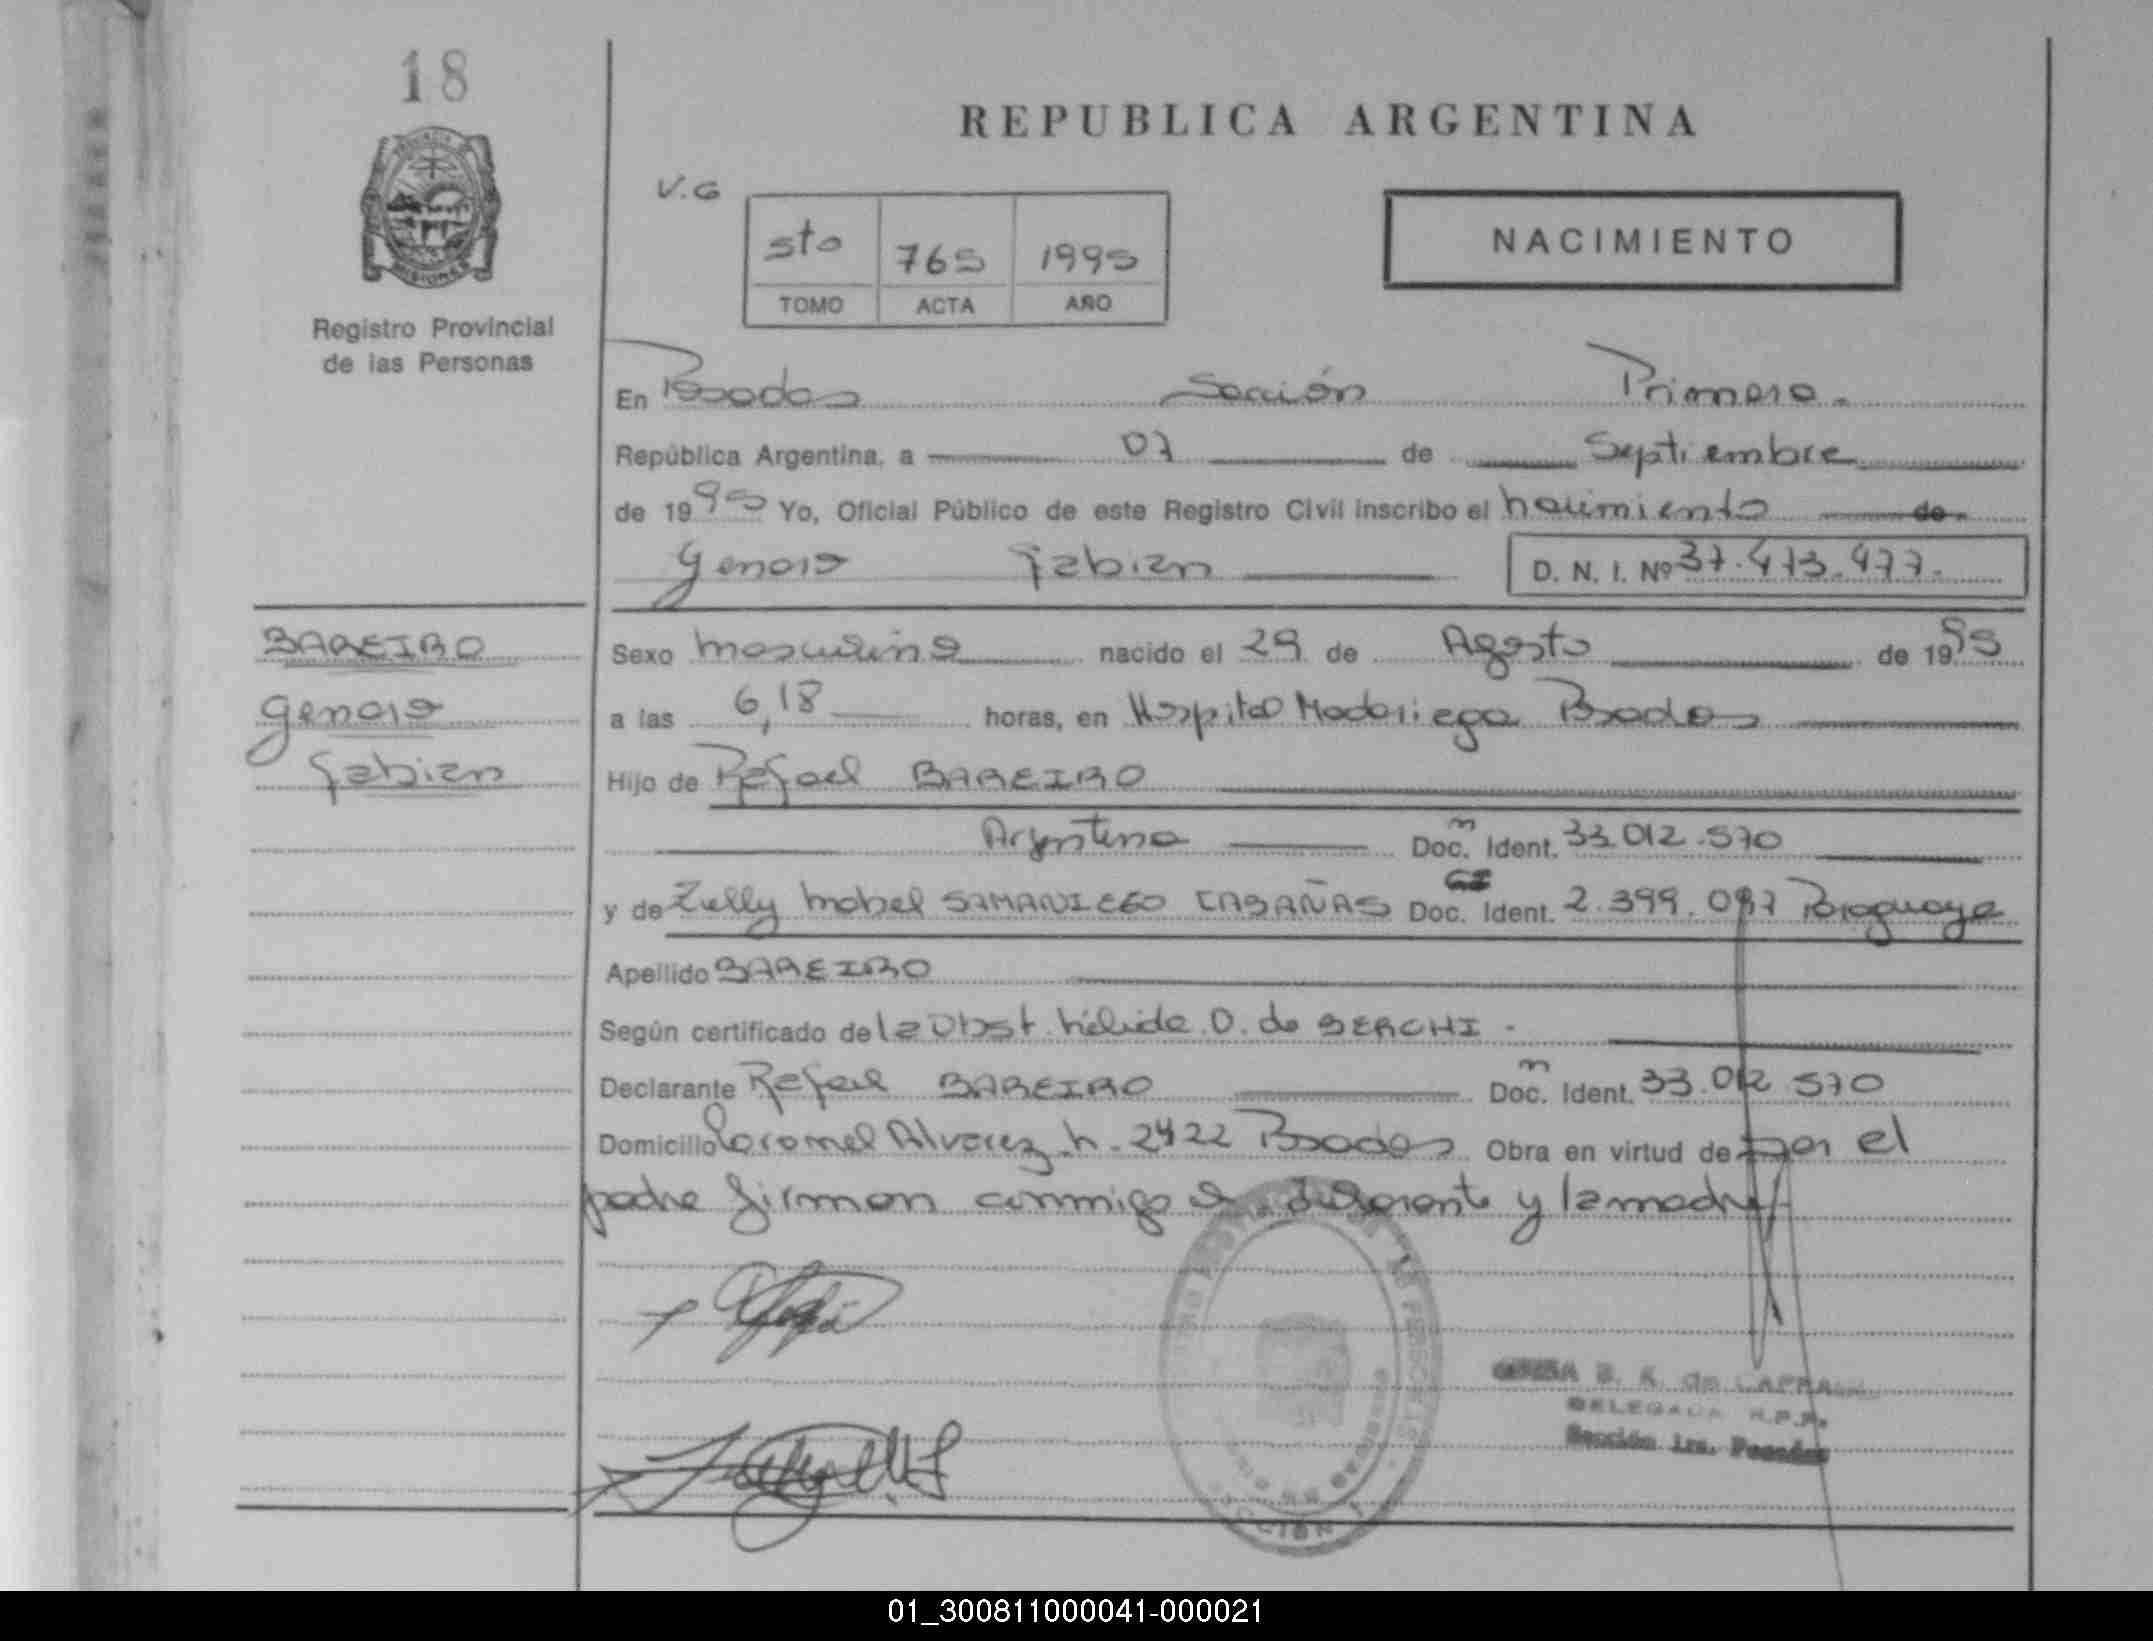 18
REPUBLICA ARGENTINA
V.G
5to 765 1995
TOMO ACTA AÑO
NACIMIENTO
MISIONES
Registro Provincial
de las Personas
En Posadas Sección Primera.
República Argentina, a 07 de Septiembre
de 1995 Yo, Oficial Público de este Registro Civil inscribo el nacimiento de
Genaro Fabian D. N. I. Nº 37.473.477.
BAREIRO
Genaro
Fabian
Sexo masculino nacido el 29 de Agosto de 1995
a las 6,18 horas, en Hospital Madariaga Posadas
Hijo de Rafael BAREIRO
Argentina Doc. Ident. 33.012.570
y de Zully Mabel SAMANIEGO CABAÑAS Doc. Ident. 2.399.097 Paraguaya
Apellido BAREIRO
Según certificado de la Obst. Nelida O. de BERCHI.
Declarante Rafael BAREIRO Doc. Ident. 33.012 570
Domicilio Coronel Alvarez h. 2422 Posadas Obra en virtud de ser el
padre firman conmigo el declarante y la madre
B. K. de
DELEGADA R.P.P.
Sección 1ra. Posadas
SECCION 1
01_300811000041-000021